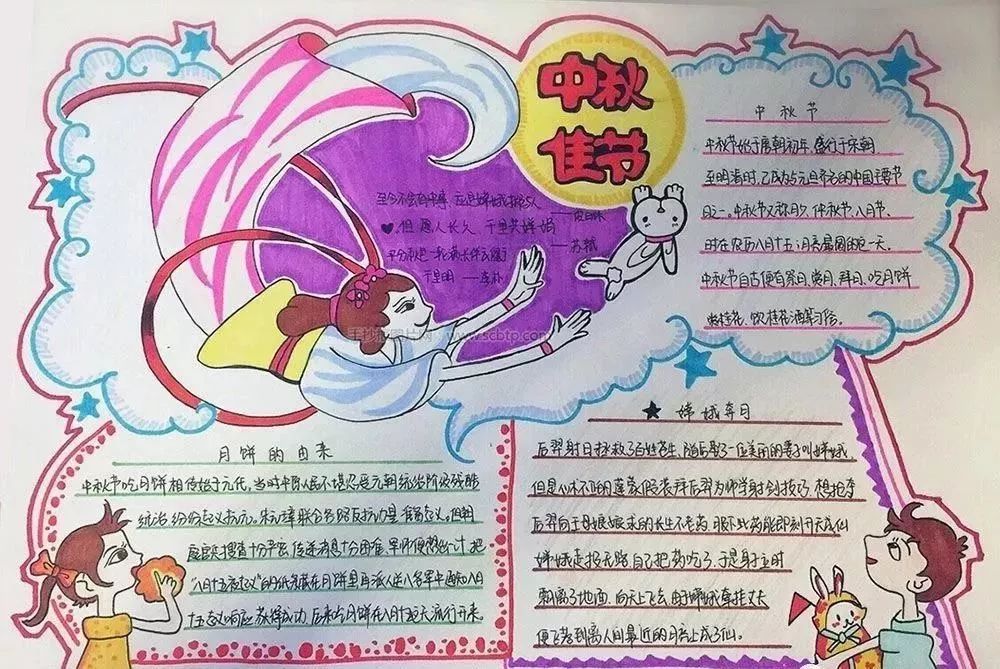 中秋
佳节
至今不会天中事,应是嫦娥掷与人
——皮日休
但愿人长久,千里共婵娟
——苏轼
平分秋色一轮满长伴云衢
千里明——李朴
www.scbtp.com
中秋节
中秋节始于唐朝初年,盛行于宋朝,
至明清时,已成为与元旦齐名的中国主要节
日之一。中秋节又称月夕、仲秋节、八月节。
时在农历八月十五;月亮最圆的这一天。
中秋节自古便有祭月、赏月、拜月、吃月饼
赏桂花、饮桂花酒等习俗。
月饼的由来
中秋节吃月饼相传始于元代,当时中原人民不堪忍受元朝统治阶级残酷
统治纷纷起义抗元。朱元璋联合各路反抗力量准备起义。但朝
庭官兵搜查十分严密,传递消息十分困难,军师便想出一计,把
“八月十五夜起义”的纸条藏在月饼里再派人送入各军中通知八月
十五起义响应,获得成功,后来吃月饼在八月十五这天流行开来。
嫦娥奔月
后羿射日拯救了百姓苍生,随后娶了一位美丽的妻子叫嫦娥,
但是心术不正的蓬蒙假装拜后羿为师学射剑技巧,想抢夺
后羿向王母娘娘求的长生不老药,服下此药能即刻升天成仙
嫦娥走投无路,自己把药吃了,于是身立时
飘离了地面,向天上飞去,由于嫦娥牵挂丈夫
便飞落到离人间最近的月亮上成了仙。